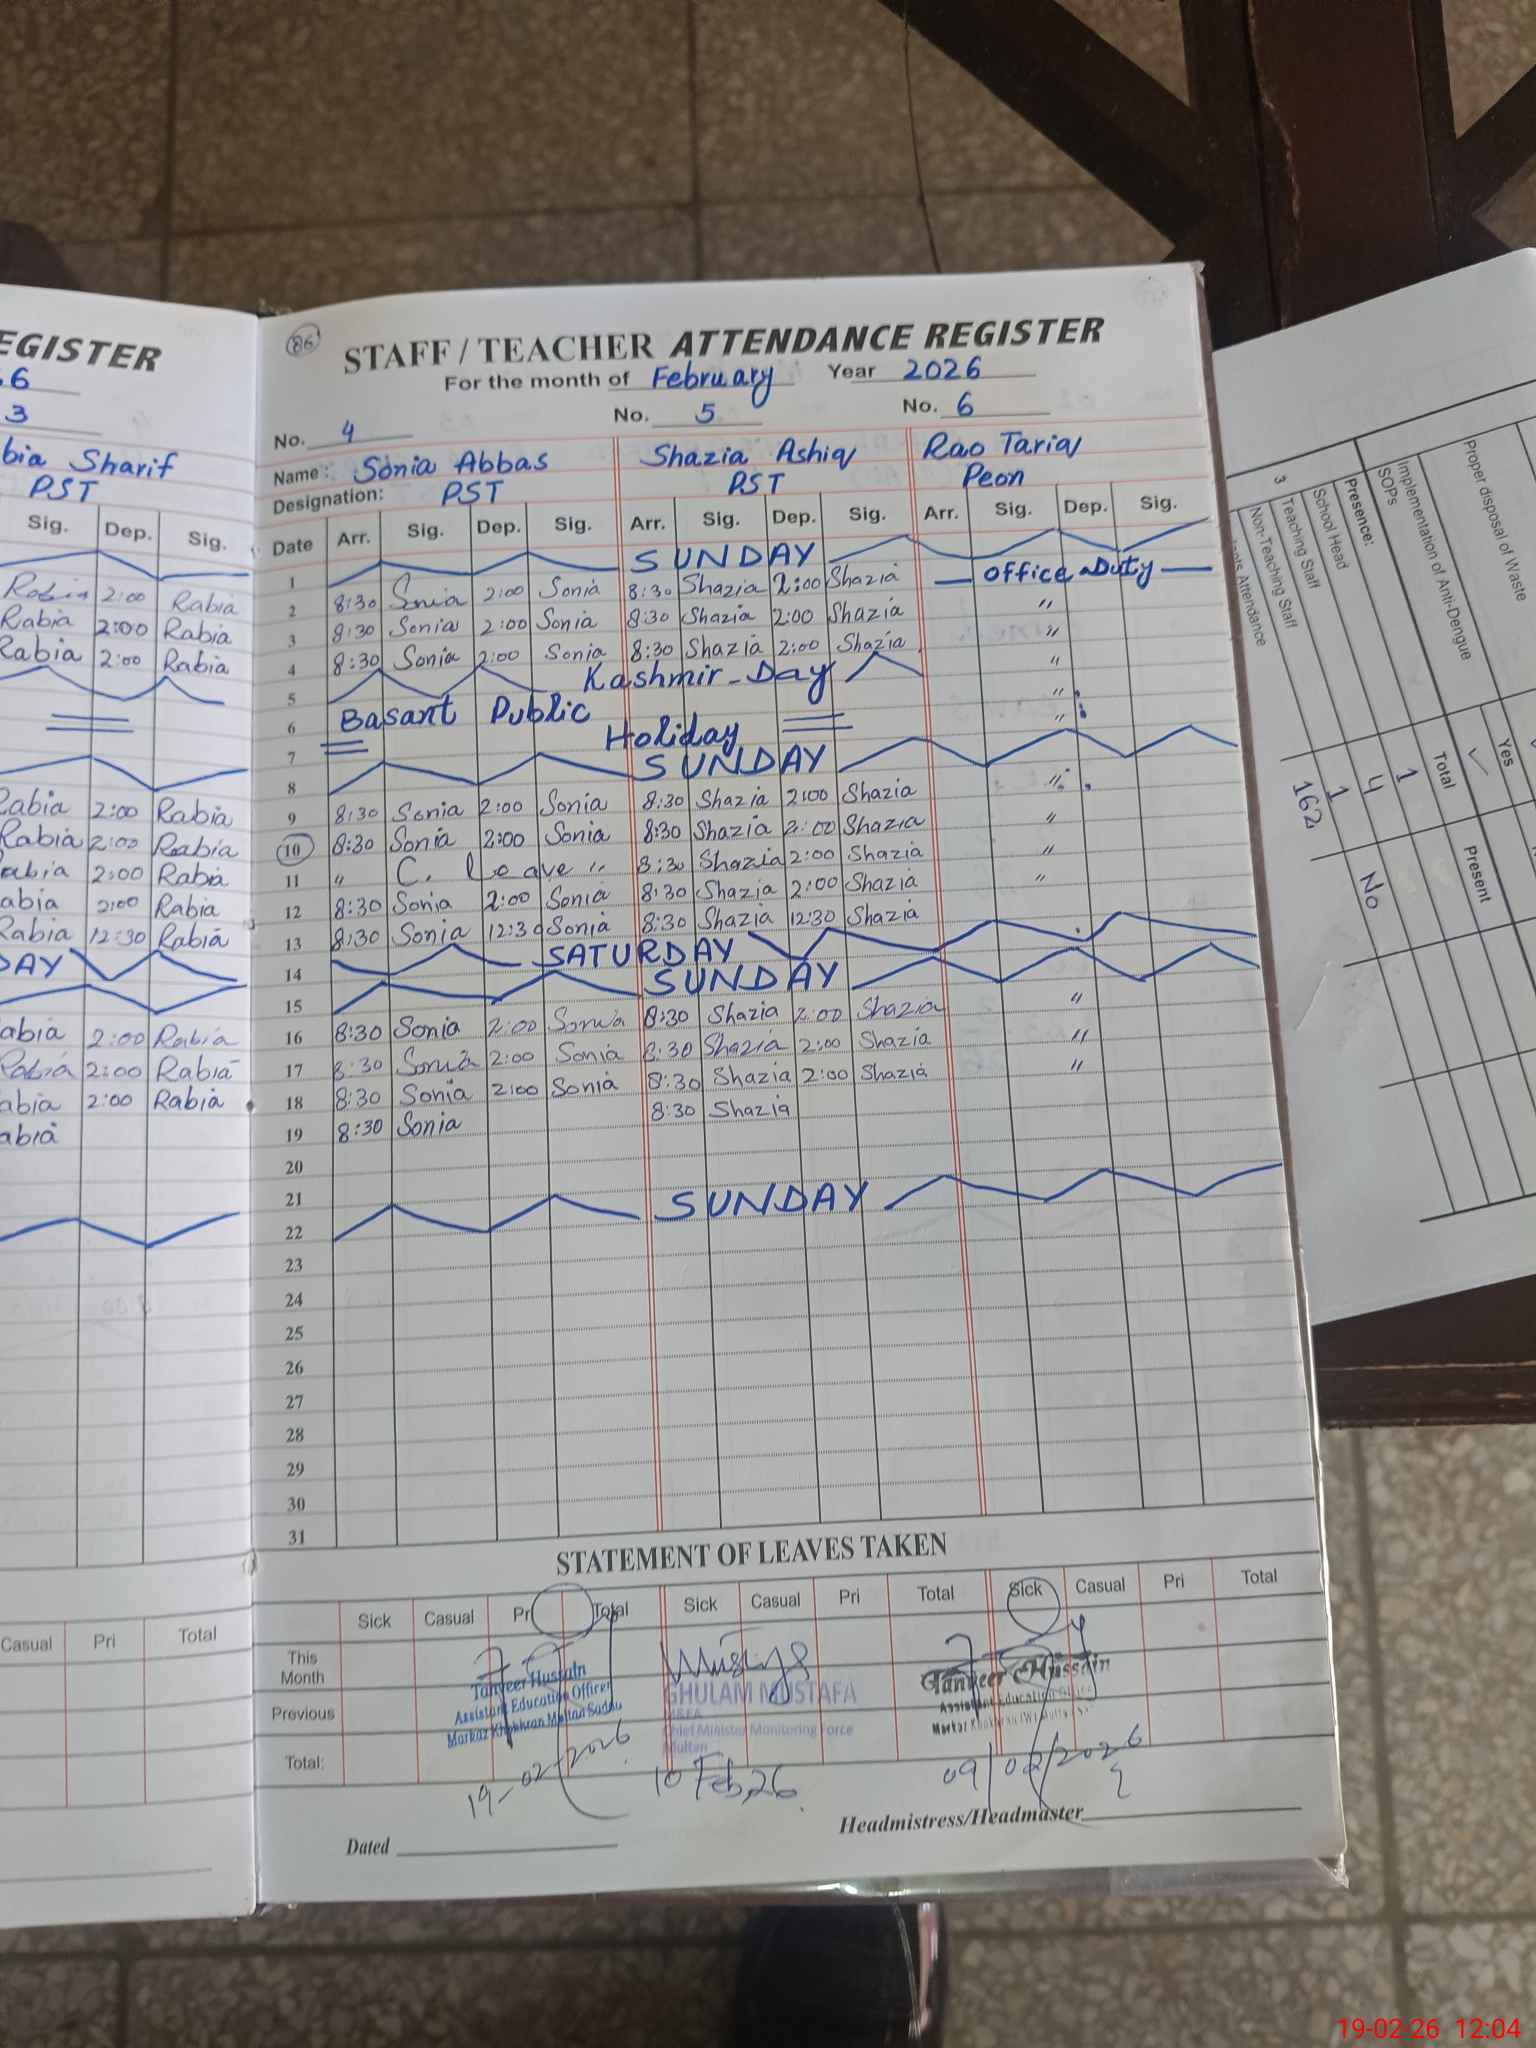 EGISTER
6
3
bia Sharif
PST
Sig. Dep. Sig.
Rabia 2:00 Rabia
Rabia 2:00 Rabia
Rabia 2:00 Rabia
Rabia 2:00 Rabia
Rabia 2:00 Rabia
abia 2:00 Rabia
abia 2:00 Rabia
Rabia 12:30 Rabia
DAY
abia 2:00 Rabia
Rabia 2:00 Rabia
abia 2:00 Rabia
abia
Casual Pri Total
86
STAFF / TEACHER ATTENDANCE REGISTER
For the month of February Year 2026
No. 4 No. 5 No. 6
Name: Sonia Abbas Shazia Ashiq Rao Tariq
Designation: PST PST Peon
Date Arr. Sig. Dep. Sig. Arr. Sig. Dep. Sig. Arr. Sig. Dep. Sig.
1 SUNDAY
2 8:30 Sonia 2:00 Sonia 8:30 Shazia 2:00 Shazia Office Duty
3 8:30 Sonia 2:00 Sonia 8:30 Shazia 2:00 Shazia "
4 8:30 Sonia 2:00 Sonia 8:30 Shazia 2:00 Shazia "
5 Kashmir-Day "
6 Basant Public "
7 Holiday "
8 SUNDAY
9 8:30 Sonia 2:00 Sonia 8:30 Shazia 2:00 Shazia "
10 8:30 Sonia 2:00 Sonia 8:30 Shazia 2:00 Shazia "
11 " C. Leave " 8:30 Shazia 2:00 Shazia "
12 8:30 Sonia 2:00 Sonia 8:30 Shazia 2:00 Shazia "
13 8:30 Sonia 12:30 Sonia 8:30 Shazia 12:30 Shazia
14 SATURDAY
15 SUNDAY
16 8:30 Sonia 2:00 Sonia 8:30 Shazia 2:00 Shazia "
17 8:30 Sonia 2:00 Sonia 8:30 Shazia 2:00 Shazia "
18 8:30 Sonia 2:00 Sonia 8:30 Shazia 2:00 Shazia "
19 8:30 Sonia 8:30 Shazia
20
21
22 SUNDAY
23
24
25
26
27
28
29
30
31
STATEMENT OF LEAVES TAKEN
Sick Casual Pri Total Sick Casual Pri Total Sick Casual Pri Total
This
Month
Previous
Total:
Tanveer Hussain
Assistant Education Officer
Markaz Khokhran Multan Saddar
19-02-2026
GHULAM MUSTAFA
Chief Minister Monitoring Force
Multan
10 Feb, 26
Tanveer Hussain
Assistant Education
09/02/2026
Dated
Headmistress/Headmaster
Proper disposal of Waste
Implementation of Anti-Dengue
SOPs
3 Presence: Total Present
School Head 1
Teaching Staff 4 No
Non-Teaching Staff 1
Attendance 162
Yes
19-02-26 12:04